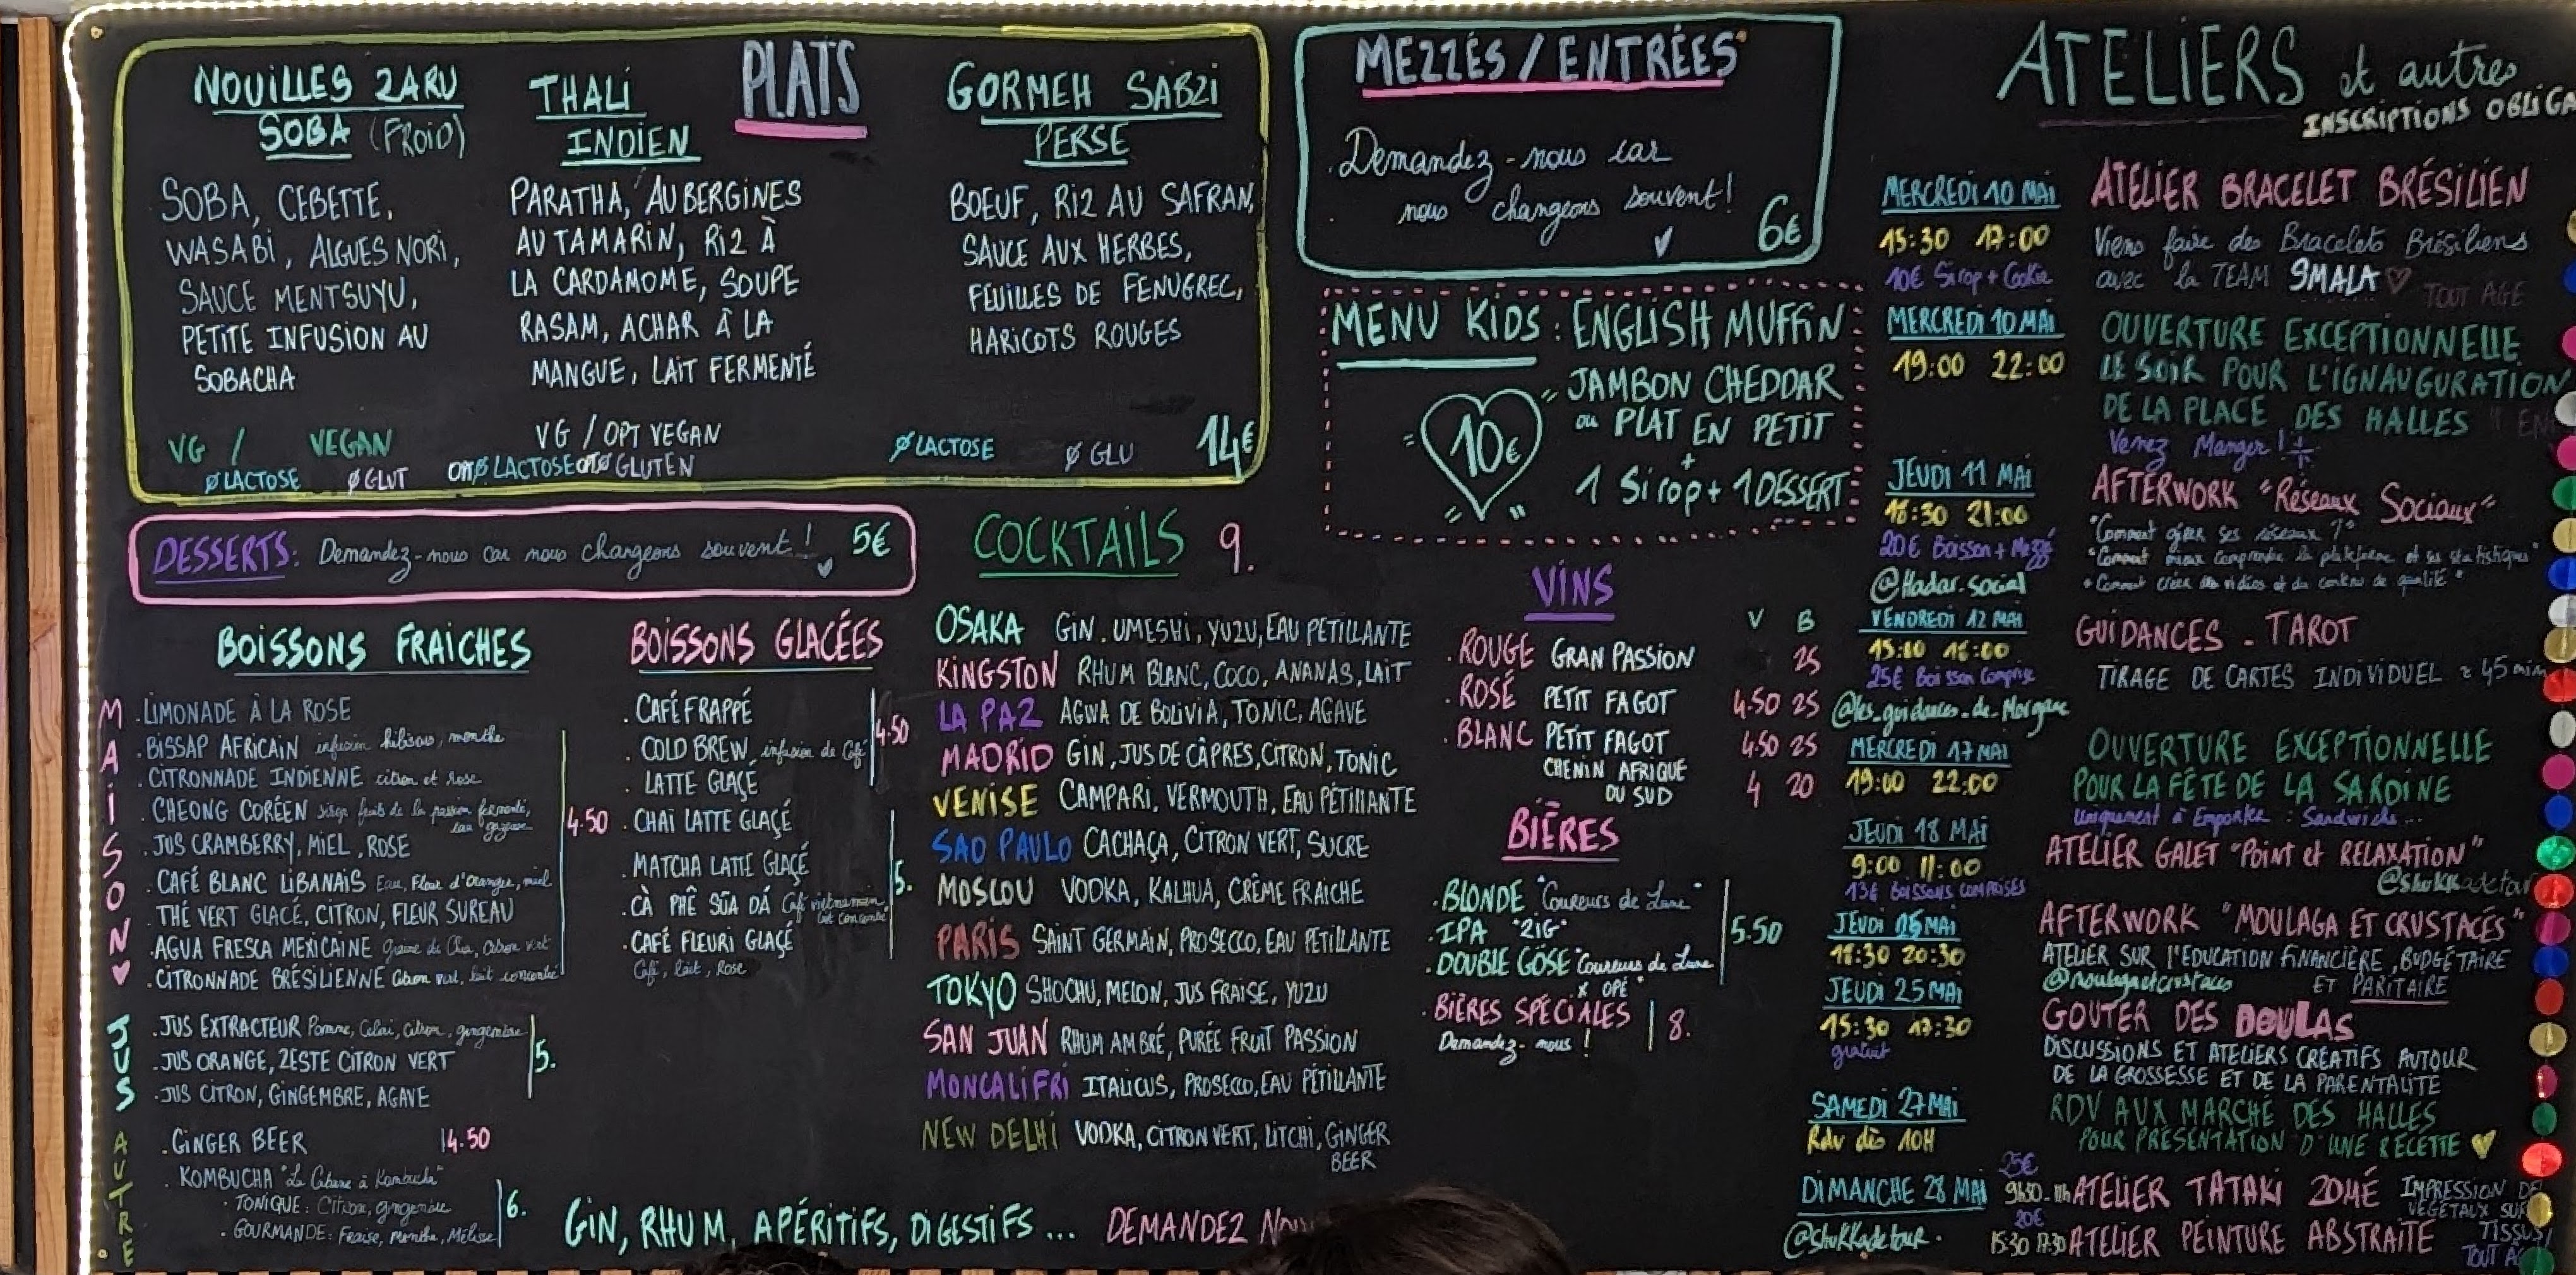 PLATS
NOUILLES ZARU
SOBA (FROID)
SOBA, CEBETTE,
WASABI, ALGUES NORI,
SAUCE MENTSUYU,
PETITE INFUSION AU
SOBACHA
VG / VEGAN
Ø LACTOSE Ø GLUT
THALI
INDIEN
PARATHA, AUBERGINES
AU TAMARIN, RIZ À
LA CARDAMOME, SOUPE
RASAM, ACHAR À LA
MANGUE, LAIT FERMENTÉ
VG / OPT VEGAN
OPT Ø LACTOSE OPT Ø GLUTEN
GORMEH SABZI
PERSE
BOEUF, RIZ AU SAFRAN,
SAUCE AUX HERBES,
FEUILLES DE FENUGREC,
HARICOTS ROUGES
Ø LACTOSE Ø GLU
14€
DESSERTS: Demandez-nous car nous changeons souvent! 5€
MEZZÉS / ENTRÉES
Demandez-nous car
nous changeons souvent!
6€
MENU KIDS: ENGLISH MUFFIN
JAMBON CHEDDAR
ou PLAT EN PETIT
+
1 Sirop + 1 DESSERT
10€
BOISSONS FRAICHES
MAISON
. LIMONADE À LA ROSE
. BISSAP AFRICAIN infusion hibiscus, menthe
. CITRONNADE INDIENNE citron et rose
. CHEONG CORÉEN sirop fruits de la passion fermenté,
eau gazeuse
. JUS CRAMBERRY, MIEL, ROSE
. CAFÉ BLANC LIBANAIS Eau, Fleur d'oranger, miel
. THÉ VERT GLACÉ, CITRON, FLEUR SUREAU
. AGUA FRESCA MEXICAINE graine de Chia, citron vert
. CITRONNADE BRÉSILIENNE Citron vert, lait concentré
4.50
JUS
. JUS EXTRACTEUR Pomme, Celeri, citron, gingembre
. JUS ORANGE, ZESTE CITRON VERT
. JUS CITRON, GINGEMBRE, AGAVE
5.
AUTRE
. GINGER BEER 4.50
. KOMBUCHA "La Cabane à Kombucha"
. TONIQUE: Citron, gingembre
. GOURMANDE: Fraise, Menthe, Mélisse
6.
BOISSONS GLACÉES
. CAFÉ FRAPPÉ
. COLD BREW infusion de Café
. LATTE GLAÇÉ
4.50
. CHAÏ LATTE GLAÇÉ
. MATCHA LATTE GLAÇÉ
. CÀ PHÊ SŪA DÁ Café vietnamien,
lait concentré
. CAFÉ FLEURI GLAÇÉ
Café, lait, Rose
5.
COCKTAILS 9.
OSAKA GIN, UMESHI, YUZU, EAU PETILLANTE
KINGSTON RHUM BLANC, COCO, ANANAS, LAIT
LA PAZ AGWA DE BOLIVIA, TONIC, AGAVE
MADRID GIN, JUS DE CÂPRES, CITRON, TONIC
VENISE CAMPARI, VERMOUTH, EAU PÉTILLANTE
SAO PAULO CACHAÇA, CITRON VERT, SUCRE
MOSCOU VODKA, KALHUA, CRÊME FRAICHE
PARIS SAINT GERMAIN, PROSECCO, EAU PETILLANTE
TOKYO SHOCHU, MELON, JUS FRAISE, YUZU
SAN JUAN RHUM AMBRÉ, PURÉE FRUIT PASSION
MONCALIFRI ITALICUS, PROSECCO, EAU PÉTILLANTE
NEW DELHI VODKA, CITRON VERT, LITCHI, GINGER
BEER
GIN, RHUM, APÉRITIFS, DIGESTIFS... DEMANDEZ
VINS
V B
. ROUGE GRAN PASSION 25
. ROSÉ PETIT FAGOT 4.50 25
. BLANC PETIT FAGOT 4.50 25
CHENIN AFRIQUE
DU SUD 4 20
BIÈRES
. BLONDE "Coureurs de Lune"
. IPA "ZIG"
. DOUBLE GÖSE "Coureurs de Lune
x OPÉ"
5.50
. BIÈRES SPÉCIALES 8.
Demandez-nous!
ATELIERS et autres
INSCRIPTIONS
MERCREDI 10 MAI
15:30 17:00
10€ Sirop + Cookie
ATELIER BRACELET BRÉSILIEN
Viens faire des Bracelets Brésiliens
avec la TEAM SMALA TOUT AGE
MERCREDI 10 MAI
19:00 22:00
OUVERTURE EXCEPTIONNELLE
LE SOIR POUR L'IGNAUGURATION
DE LA PLACE DES HALLES
Venez Manger!
JEUDI 11 MAI
18:30 21:00
20€ Boisson + Mezzé
@Hadar.social
AFTERWORK "Réseaux Sociaux"
"Comment gérer ses réseaux ?"
"Comment mieux comprendre la plateforme et ses statistiques"
"Comment créer des vidéos et du contenu de qualité"
VENDREDI 12 MAI
15:00 16:00
25€ Boisson Comprise
@les_guidances_de_Morgane
GUIDANCES - TAROT
TIRAGE DE CARTES INDIVIDUEL ≈ 45 min
MERCREDI 17 MAI
19:00 22:00
OUVERTURE EXCEPTIONNELLE
POUR LA FÊTE DE LA SARDINE
uniquement à Emporter: Sandwichs...
JEUDI 18 MAI
9:00 11:00
13€ BOISSONS COMPRISES
ATELIER GALET "Point et RELAXATION"
@shukkadetour
JEUDI 25 MAI
18:30 20:30
AFTERWORK "MOULAGA ET CRUSTACÉS"
ATELIER SUR l'EDUCATION FINANCIÈRE, BUDGÉTAIRE
@moulagaetcrustaces ET PARITAIRE
JEUDI 25 MAI
15:30 17:30
gratuit
GOUTER DES DOULAS
DISCUSSIONS ET ATELIERS CRÉATIFS AUTOUR
DE LA GROSSESSE ET DE LA PARENTALITÉ
SAMEDI 27 MAI
Rdv dès 10H
RDV AUX MARCHÉ DES HALLES
POUR PRÉSENTATION D'UNE RECETTE
DIMANCHE 28 MAI
@shukkadetour.
25€
9h30-11h ATELIER TATAKI ZOMÉ IMPRESSION DE
VÉGÉTAUX SUR
TISSUS
20€
15:30 17:30 ATELIER PEINTURE ABSTRAITE
TOUT